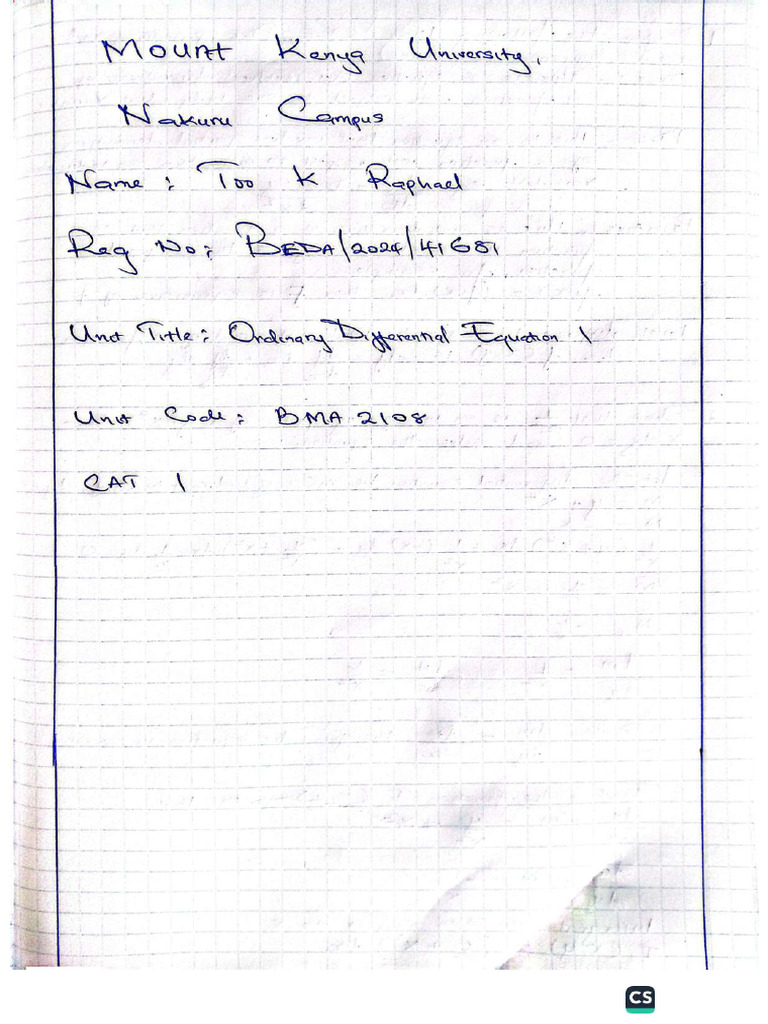 Mount Kenya University.
Nakuru Campus
Name: Too K Raphael
Reg No: BEDA/2024/41681
Unit Title: Ordinary Differential Equation 1
Unit Code: BMA 2108
CAT 1
CS